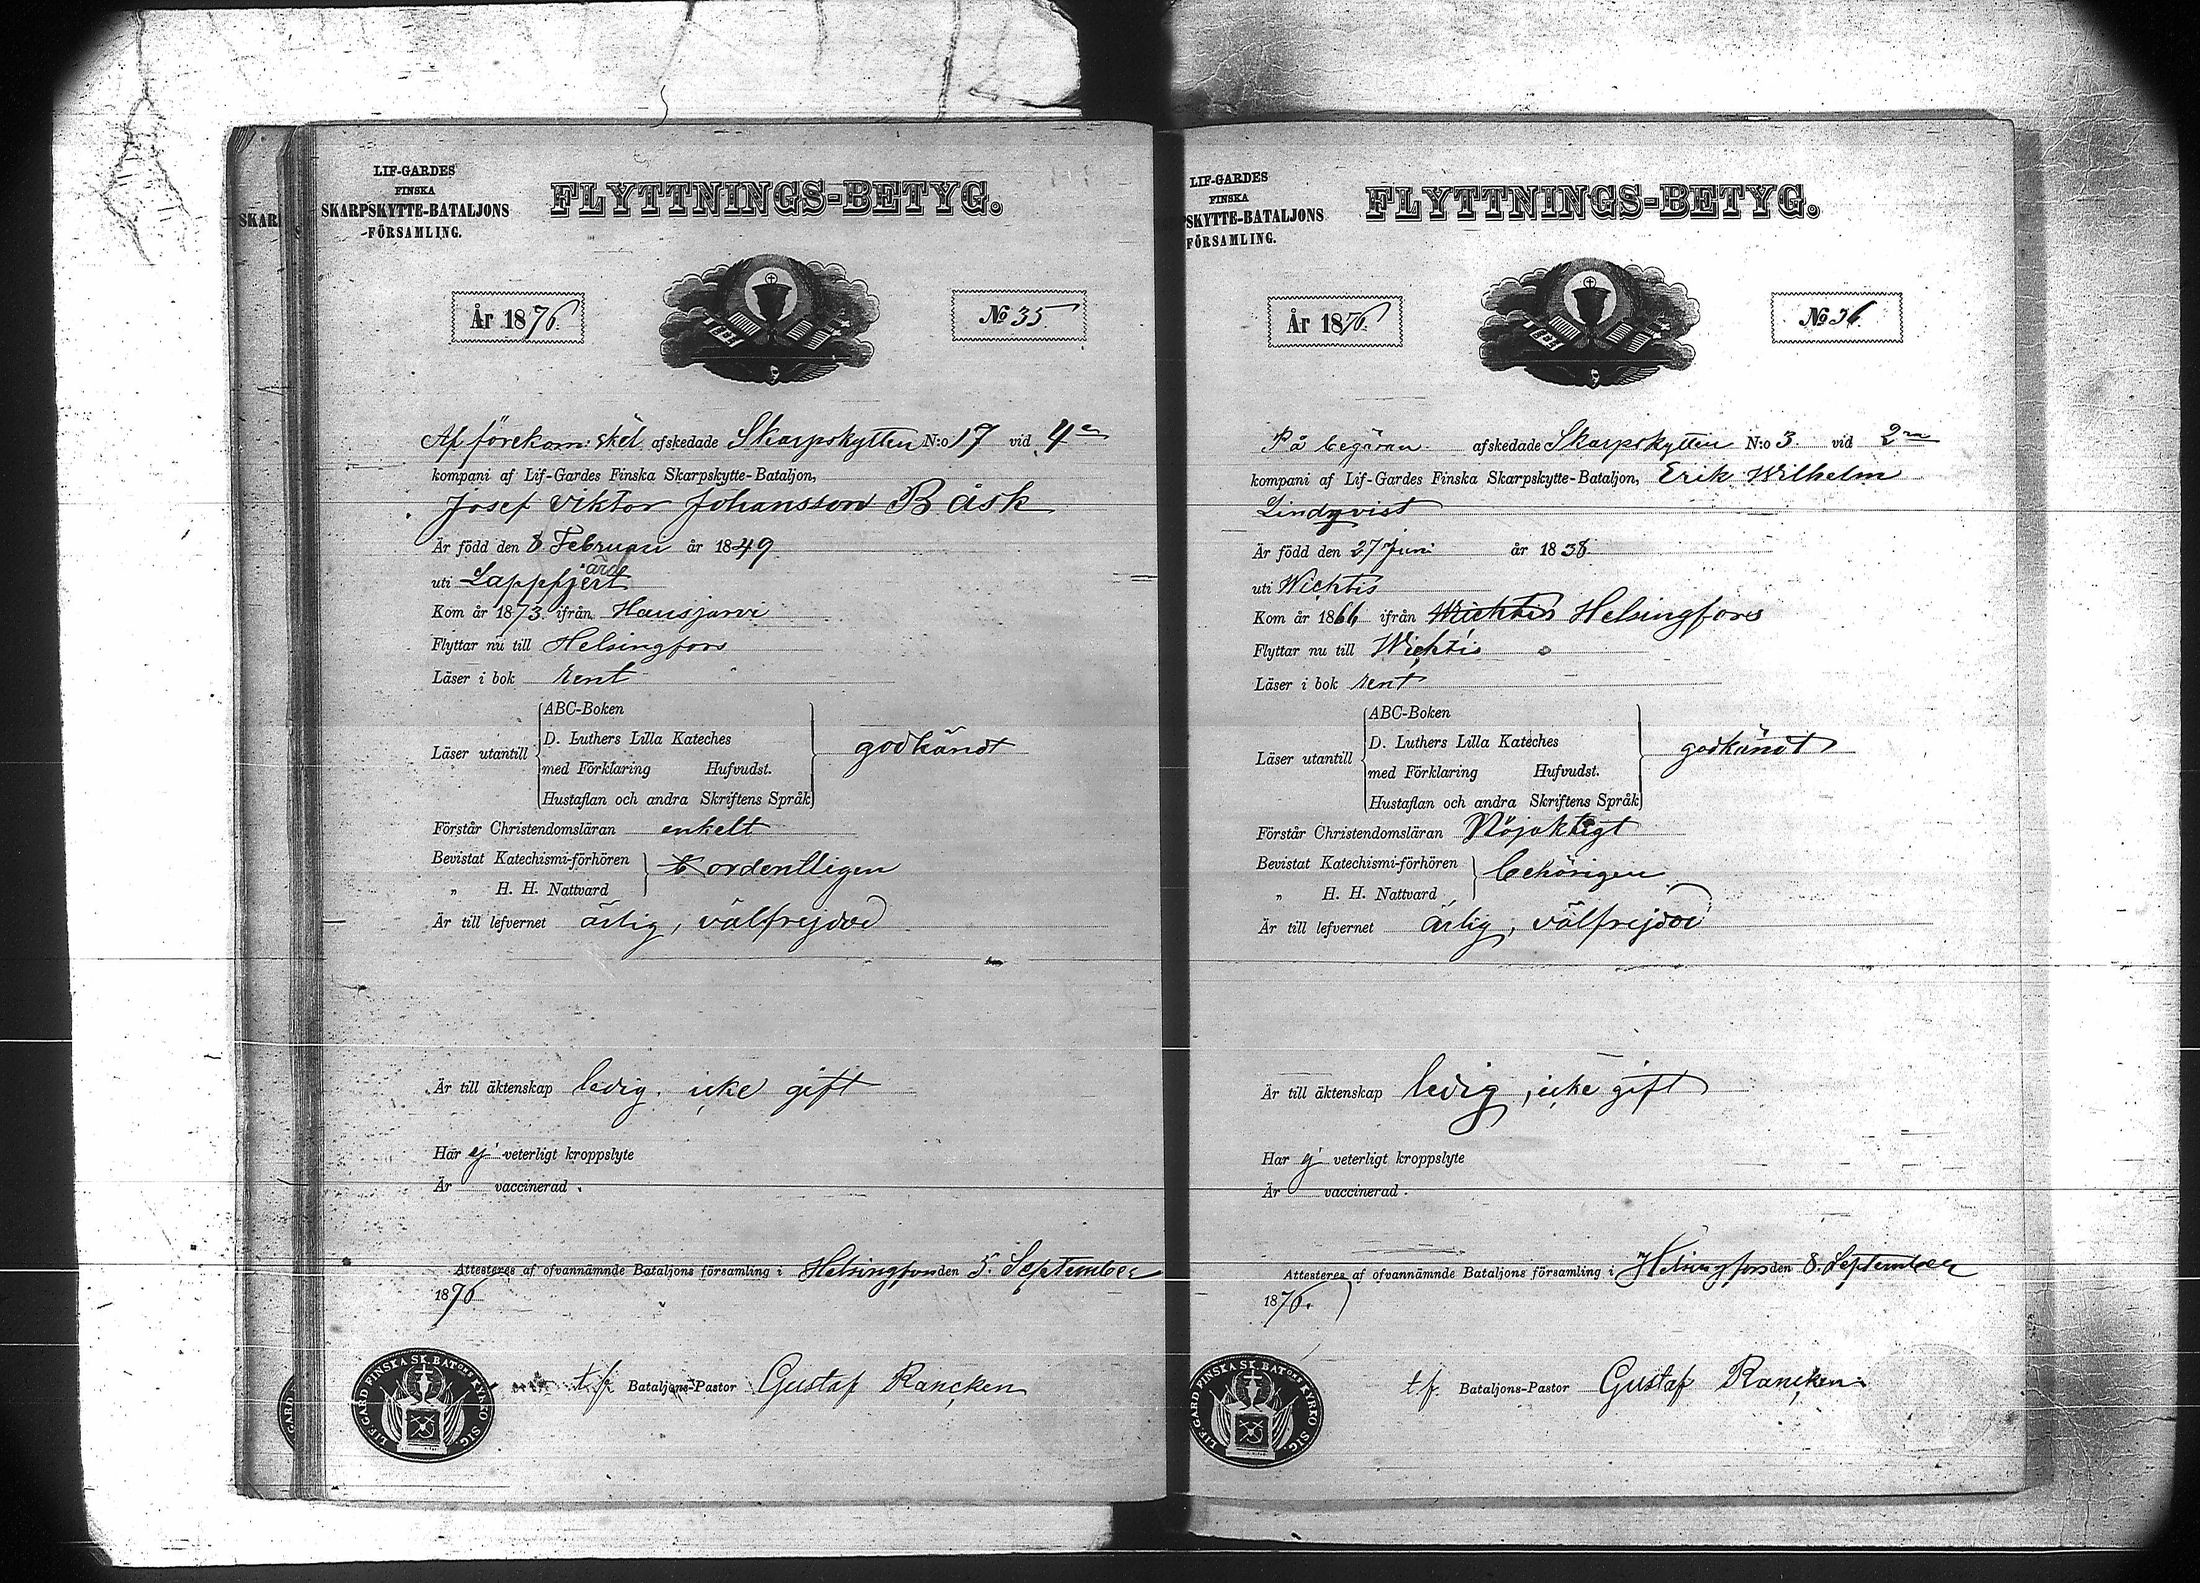 SKAR
LIF-GARDES
FINSKA
SKARPSKYTTE-BATALJONS
FÖRSAMLING.
FLYTTNINGS-BETYG.
År 1876.
No 35
Af förekom: skäl afskedade Skarpskytten N:o 17 vid 4e
kompani af Lif-Gardes Finska Skarpskytte-Bataljon,
Josef Viktor Johansson Båsk
Är född den 8 Februari år 1849
uti Lappfjert
Kom år 1873 ifrån Hausjarvi
Flyttar nu till Helsingfors
Läser i bok rent
Läser utantill
ABC-Boken
D. Luthers Lilla Kateches
med Förklaring Hufvudst.
Hustaflan och andra Skriftens Språk
godkändt
Förstår Christendomsläran enkelt
Bevistat Katechismi-förhören
„ H. H. Nattvard
ordentligen
Är till lefvernet ärlig, välfrejdad
Är till äktenskap ledig, icke gift
Har ej veterligt kroppslyte
Är vaccinerad.
Attesteras af ofvannämnde Bataljons församling i Helsingfors den 5. September
1876
t.f. Bataljons-Pastor Gustaf Rancken
LIF.GARD FINSKA SK. BATONS KYRKO SIG.
LIF-GARDES
FINSKA
SKYTTE-BATALJONS
FÖRSAMLING.
FLYTTNINGS-BETYG.
År 1876
No 36.
På begäran afskedade Skarpskytten N:o 3. vid 2ra
kompani af Lif-Gardes Finska Skarpskytte-Bataljon, Erik Wilhelm
Lindqvist
Är född den 27 Juni år 1838
uti Wichtis
Kom år 1866 ifrån Wichtis Helsingfors
Flyttar nu till Wichtis
Läser i bok rent
Läser utantill
ABC-Boken
D. Luthers Lilla Kateches
med Förklaring Hufvudst.
Hustaflan och andra Skriftens Språk
godkändt
Förstår Christendomsläran Nöjaktigt
Bevistat Katechismi-förhören
„ H. H. Nattvard
behörigen
Är till lefvernet ärlig, välfrejdad
Är till äktenskap ledig, icke gift
Har ej veterligt kroppslyte
Är vaccinerad.
Attesteras af ofvannämnde Bataljons församling i Helsingfors den 8. September
1876.
t.f. Bataljons-Pastor Gustaf Rancken
LIF.GARD FINSKA SK. BATONS KYRKO SIG.